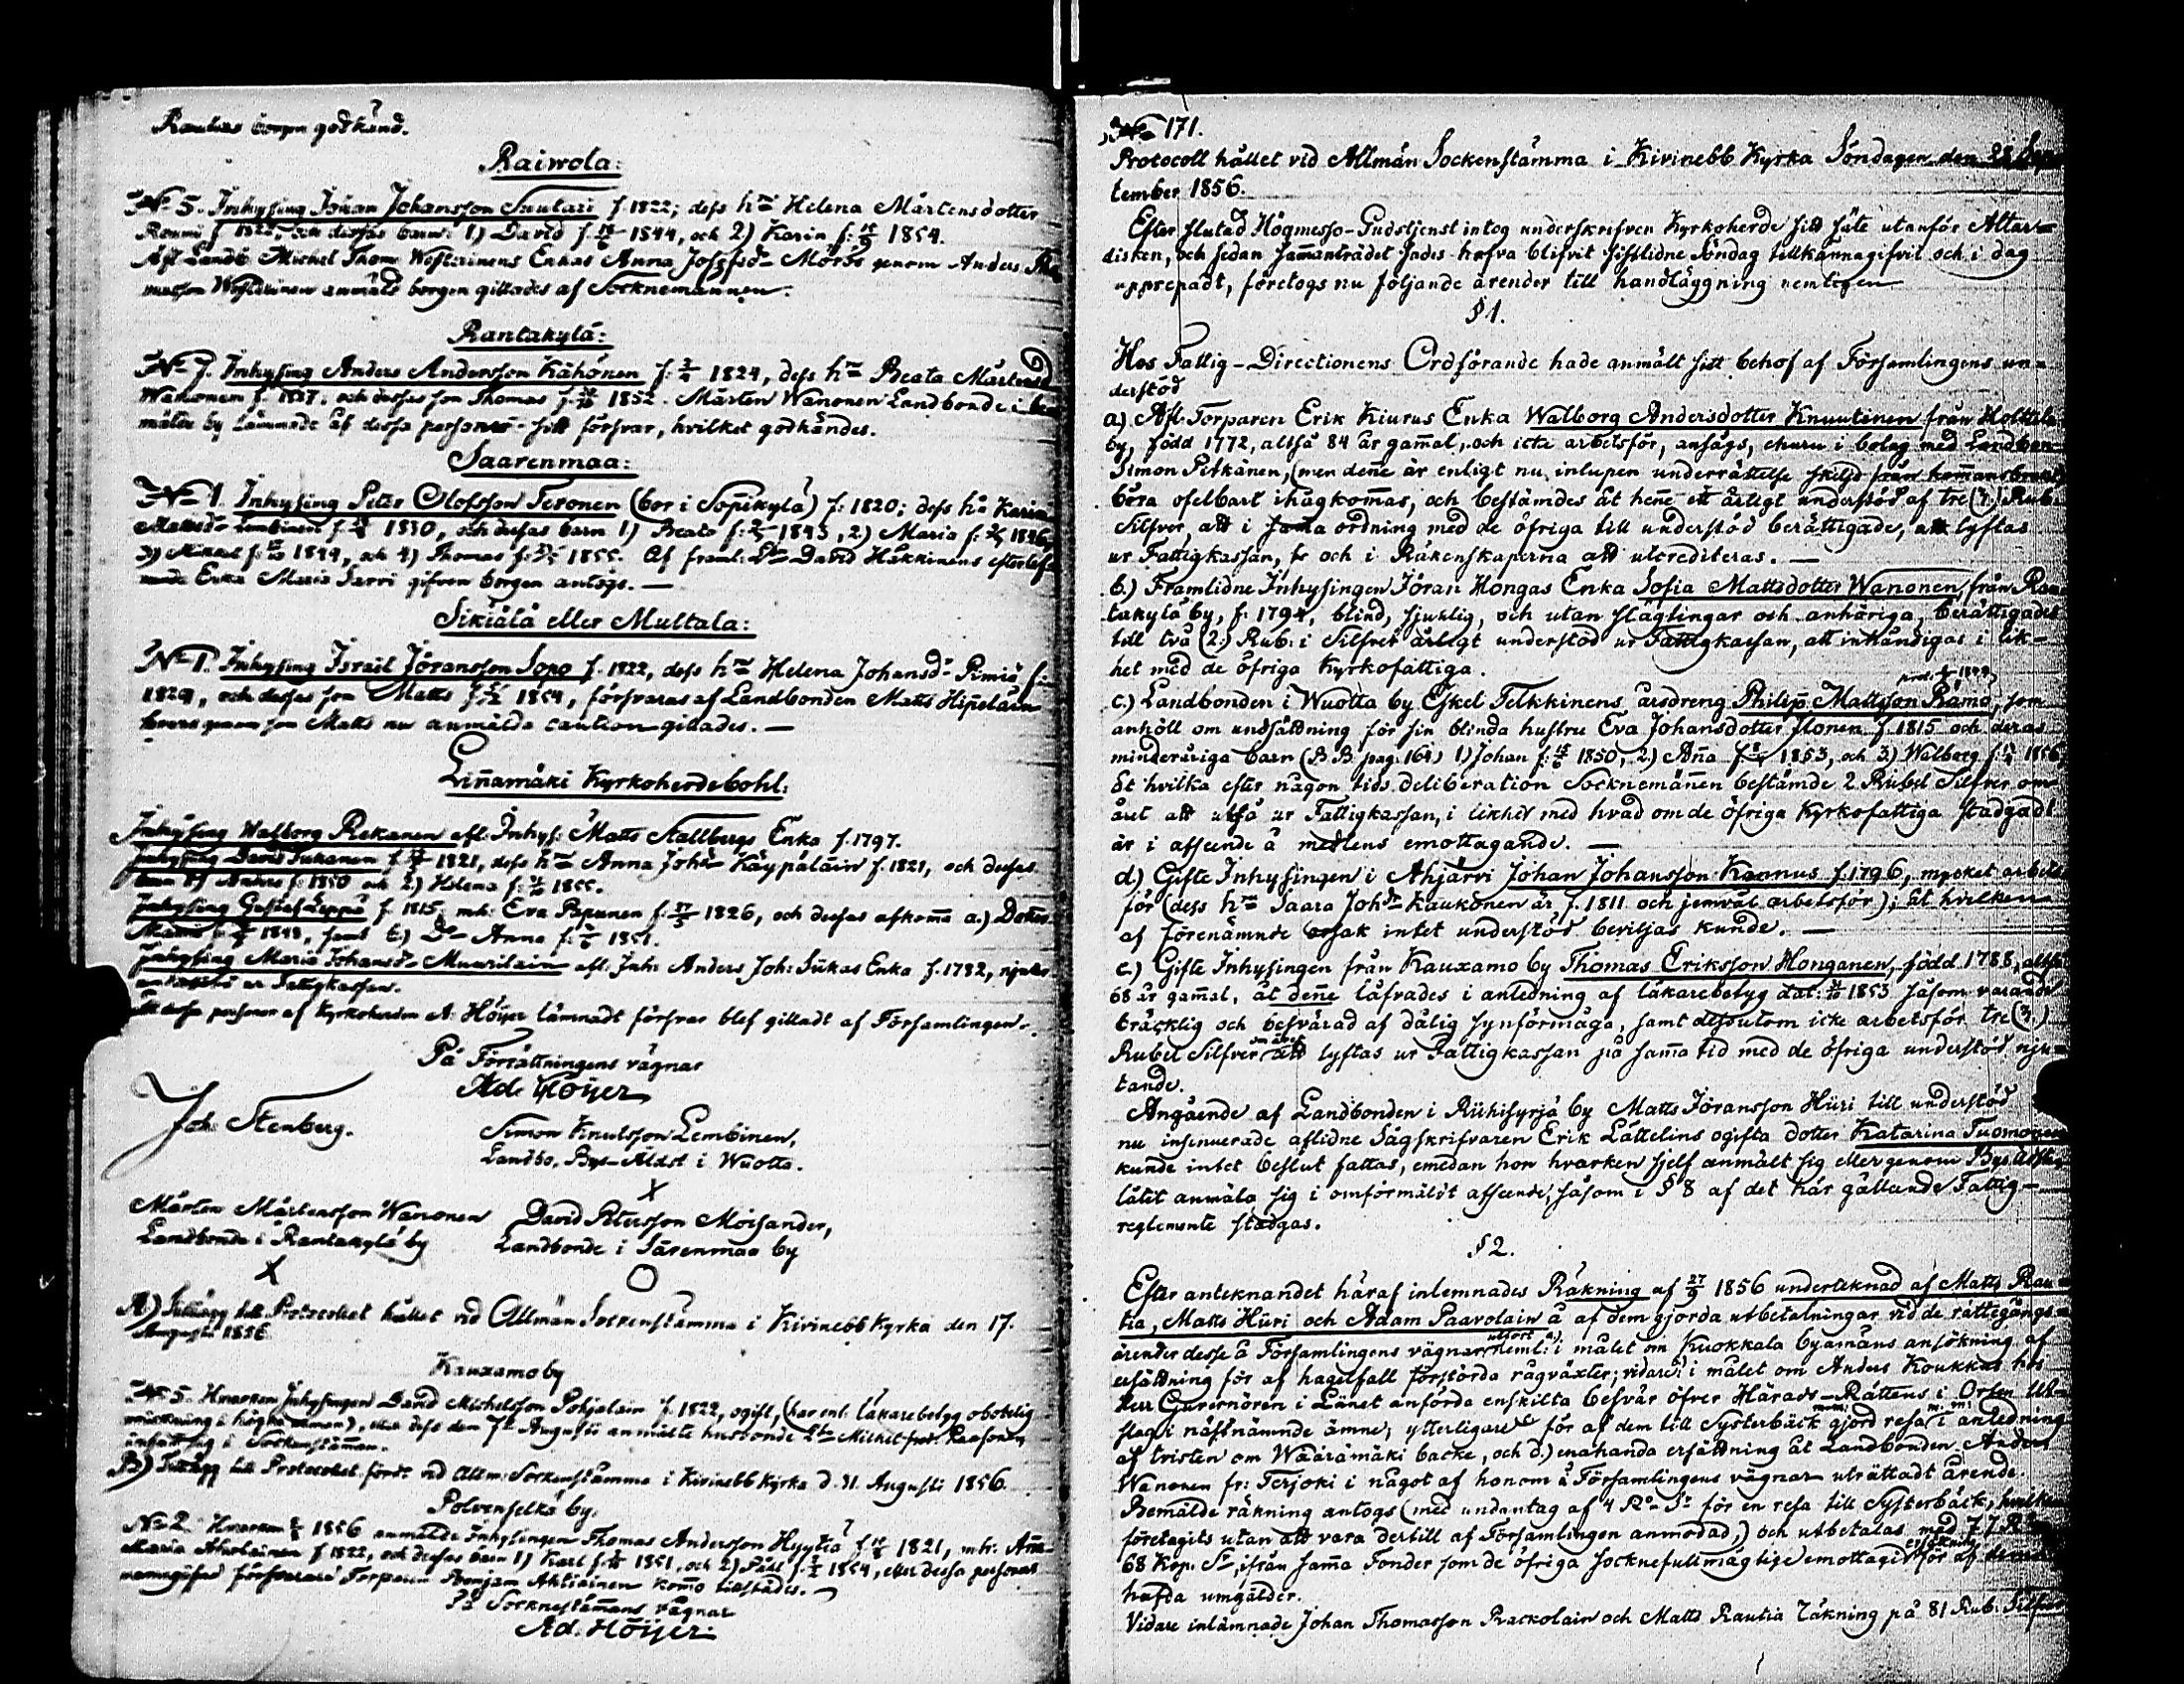 Rautias borgen godkänd.
Raiwola:
No 5. Inhysing Johan Johansson Suutari f. 1822; dess hru Helena Mårtensdotter
f. 1822, och dessas barn: 1) David f. 1844, och 2) Karin f. 1854.
Afl. Landb. Michel Thom. Westerinens Enkas Anna Josefsdr genom Anders Tho-
masson Westerinen anmäld borgen gillades af Socknemännen.
Rantakylä:
No 7. Inhysing Anders Andersson Kähönen f. 1824, dess hru Beata Mårtensd
Wanonen f. 1827, och dessas son Thomas f. 1852. Mårten Wanonen Landbonde i be-
mälte by lämnade åt dessa personer sitt försvar, hvilket godkändes.
Saarenmaa:
No 1. Inhysing Peter Olofsson Teronen (bor i Sopikylä) f. 1820; dess h. Karin
Mattsdr Lembinen f. 1830, och dessas barn 1) Beata f. 1843, 2) Maria f. 1846
3) Mikael f. 1849, och 4) Thomas f. 1855. Af framl. Lbn David Häkkinens efterlef-
vande Enka Maria Sarri gifven borgen antogs. —
Sikiälä eller Multala:
No 1. Inhysing Israel Jöransson Sopo f. 1822, dess hru Helena Johansdr Pimiä f:
1829, och dessas son Matts f. 1854, försvaras af Landbonden Matts Hipeläin
genom son Matts nu anmälda caution gillades. —
Linamäki Kyrkoherdebohl:
Inhysing Walborg Rekanen afl. Inhys: Matts Stallbergs Enka f. 1797.
Inhysing David Tukanen f. 1821, dess hru Anna Johdr Käypäläin f. 1821, och dessas
barn 1) Anders f. 1850 och 2) Helena f. 1855.
Inhysing Gustaf Leppä f. 1815, mh: Eva Papunen f. 27/5 1826, och dessas afkoma a.) Dotter
Maria f. 1848, samt b.) Dr Anna f. 1851.
Inhysing Maria Johansdr Muurilain afl. Inh: Anders Joh: Sukas Enka f. 1782, njuter
understöd ur Fattigkassan.
Åt dessa personer af Kyrkoherden A. Höijer lämnadt försvar blef gilladt af Församlingen.
På Förrättningens vägnar
Ad. Höijer
Joh: Stenberg.
Simon Knutsson Lembinen,
Landbo, Bys-Äldst i Wuotta.
X
Mårten Mårtensson Wanonen
Landbonde i Rantakylä by
X
David Petersson Moisander,
Landbonde i Särenmaa by
O
A.) Tillägg till Protocollet hållet vid Allmän Sockenstämma i Kivinebb Kyrka den 17.
Augusti 1856.
Kauxamo by
No 5. Hvarken Inhysingen David Michelsson Pohjalain f. 1822, ogift, (har enl: läkarebetyg obotelig
i högra armen), eller dess den 7de Augusti anmälte husbonde Lbn Michel Paasonen
infann sig i Sockenstäman.
B.) Tillägg till Protocollet fördt vid Allm: Sockenstämma i Kivinebb Kyrka d. 31. Augusti 1856.
Polvenselkä by.
No 2. Hvarken 1856 anmälde Inhysingen Thomas Andersson Hyytiä f. 1821, mh: Anna
Maria f. 1822, och dessas barn 1) Karl f. 1851, och 2) Påhl f. 1854, eller dessa personers
namngifne försvarare Torparen Benjam Ahtiainen komo tillstädes.
På Sockenstämans vägnar
Ad. Höijer.
No 171.
Protocoll hållet vid Allmän Sockenstämma i Kivinebb Kyrka Söndagen den 28 Sep-
tember 1856.
Efter slutad Högmesso-Gudstjenst intog underskrifven Kyrkoherde sitt säte utanför Altar-
disken, och sedan samanträdet sades hafva blifvit sistlidne Söndag tillkännagifvit och i dag
upprepadt, företogs nu följande ärender till handläggning nemligen
§ 1.
Hos Fattig-Directionens Ordförande hade anmält sitt behof af Församlingens un-
derstöd
a) Afl. Torparen Erik Kiurus Enka Walborg Andersdotter Knuutinen från Holttila
by, född 1772, altså 84 år gamal, och icke arbetsför, ansågs, churu i bolag med Landbon
Simon Pitkänen, (men dene är enligt nu inlupen underrättelse skiljd från
böra ofelbart ihågkomas, och bestämdes åt hene ett årligt understöd af tre (3.) Rub.
Silfver, att i sama ordning med de öfriga till understöd berättigade, att lyftas
ur Fattigkassan, och i Räkenskaperna att utcrediteras. —
b.) Framlidne Inhysingen Jöran Hongas Enka Sofia Mattsdotter Wanonen, från Ran-
takylä by, f. 1794, blind, sjuklig, och utan släglingar och anhöriga, berättigades
till två (2.) Rub: i Silfver årligt understöd ur Fattigkassan, att inhändigas i lik-
het med de öfriga Kyrkofattiga.
c.) Landbonden i Wuotta by Eskel Telkkinens årsdreng Philip Mattsson Rämö, som
anhöll om undsättning för sin blinda hustru Eva Johansdotter Ilonen f. 1815 och deras
minderåriga barn (B.B. pag. 164) 1) Johan f. 1850, 2) Aña f. 1853, och 3.) Walborg f. 1856,
åt hvilka efter någon tids deliberation Socknemänen bestämde 2 Rubel Silfver om
året att utfå ur Fattigkassan, i likhet med hvad om de öfriga Kyrkofattiga stadgadt
är i afseende å medlens emottagande. —
d) Gifte Inhysingen i Ahjärvi Johan Johansson Kannus f. 1796, mycket arbets-
för (dess hru Saara Johdr Kaukonen är f. 1811 och jemväl arbetsför); åt hvilken
af förenämnde orsak intet understöd beviljas kunde. —
e.) Gifte Inhysingen från Kauxamo by Thomas Eriksson Honganen, född 1788, altså
68 år gamal, åt dene låfvades i anledning af läkarebetyg dat: 1853 såsom varande
bräcklig och besvärad af dålig synförmåga, samt dessutom icke arbetsför tre (3.)
Rubel Silfver om året att lyftas ur Fattigkassan på sama tid med de öfriga understöd nju-
tande.
Angående af Landbonden i Riihisyrjä by Matts Jöransson Hüri till understöd
nu insinuerade aflidne Sågskrifvaren Erik Lättelins ogifta dotter Katarina Tuomonen
kunde intet beslut fattas, emedan hon hvarken sjelf anmält sig eller genom Bys Äldste
låtit anmäla sig i omförmäldt afseende, såsom i § 8 af det här gällande Fattig-
reglemente stadgas.
§ 2.
Efter anteknandet häraf inlemnades Räkning af 27/9 1856 underteknad af Matts Rau-
tia, Matts Hüri och Adam Paavolain å af dem gjorda utbetalningar vid de rättegångs-
ärender desse å Församlingens vägnar utfört neml: a) i målet om Kuokkala byamäns ansökning af
ersättning för af hagelfall förstörda rågväxter; vidare i målet om Anders Koukkus hos
Herr Guvernören i Länet anförda enskilta besvär öfver Härads-Rättens i Orten Ut-
slag i näst nämnde ämne; ytterligare för af dem till Systerbäck gjord resa i anledning
af tvisten om Wäärämäki backe, och d.) enahanda ersättning åt Landbonden Anders
Wanonen fr: Terjoki i något af honom å Församlingens vägnar uträttadt ärende.
Bemälde räkning antogs (med undantag af 4 Ro Sr för en resa till Systerbäck, hvilken
företagits utan att vara dertill af Församlingen anmodad,) och utbetalas med 77 R.
68 Kop. Sr, ifrån sama Fonder som de öfriga sockne fullmägtige emottagit ersättning för af dem
hafda umgälder.
Vidare inlämnade Johan Thomasson Rackolain och Matts Rautia Räkning på 81 Rub: Silfver